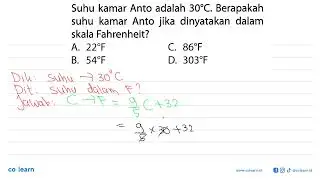 Suhu kamar Anto adalah 30°C. Berapakah
suhu kamar Anto jika dinyatakan dalam
skala Fahrenheit?
A. 22°F C. 86°F
B. 54°F D. 303°F
Dik: suhu → 30°C
Dit: suhu dalam F?
Jawab: C → F = 9/5 C + 32
= 9/5 × 30 + 32
co learn
www.colearn.id
colearn.id